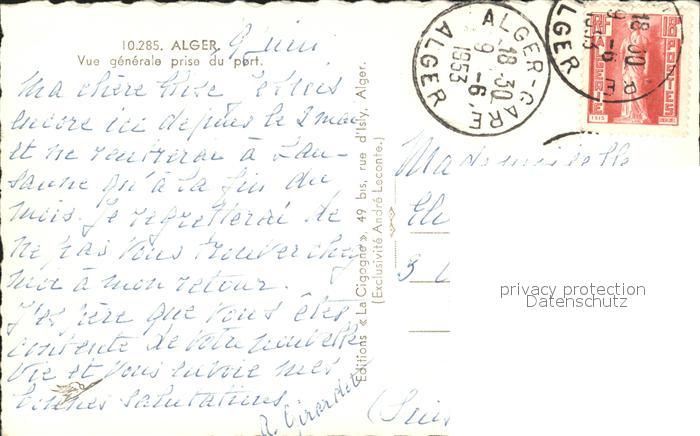 10.285. ALGER.
Vue générale prise du port.
9 Juin
Ma chère Elise Je suis
encore ici depuis le 2 mai
et ne rentrerai à Lau-
sanne qu'à la fin du
mois. Je regretterai de
ne pas vous trouver chez
moi à mon retour.
J'espère que vous êtes
contente de votre nouvelle
vie et vous envoie mes
bonnes salutations.
Editions « La Cigogne », 49 bis, rue d'Isly, Alger.
(Exclusivité André Leconte.)
ALGER-GARE
18-30
9 -6
1953
ALGER
18-30
9 -6
1953
ALGER
POSTES
ALGERIE
Mademoiselle
3
privacy protection
Datenschutz